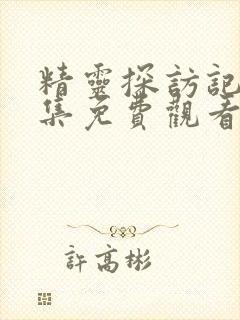 精靈探訪記
集免費觀看
許高彬